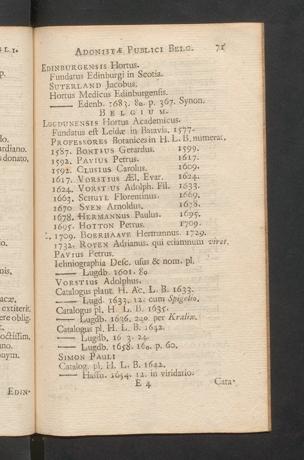 L. 1.
p.
do.
ardiano.
s donato,
p.
mis,
acæ,
extiterit.
ere oblig.
ır.
octissim,
uno.
onym.
EDIN-
ADONISTÆ PUBLICI BELG. 71
EDINBURGENSIS Hortus.
Fundatus Edinburgi in Scotia.
SUTERLAND Jacobus.
Hortus Medicus Edinburgensis.
—— Edenb. 1683. 8o. p. 367. Synon.
BELGIUM.
LUGDUNENSIS Hortus Academicus.
Fundatus est Leidæ in Batavia, 1577.
PROFESSORES Botanices in H. L. B. numerat,
1587. BONTIUS Gerardus. 1599.
1592. PAVIUS Petrus. 1617.
1592. CLUSIUS Carolus. 1609.
1617. VORSTIUS Æl. Evar. 1624.
1624. VORSTIUS Adolph. Fil. 1633.
1663. SCHUYL Florentinus. 1669.
1670 SYEN Arnoldus. 1678.
1678. HERMANNUS Paulus. 1695.
1695. HOTTON Petrus. 1709.
1709. BOERHAAVE Hermannus. 1729.
1732. ROYEN Adrianus. qui etiamnum viret.
PAVIUS Petrus.
Ichniographia Desc. usus & nom. pl.
—— Lugdb. 1601. 8o.
VORSTIUS Adolphus.
Catalogus plant. H. Ac. L. B. 1633.
—— Lugd. 1633. 12. cum Spigelio.
Catalogus pl. H. L. B. 1635.
—— Lugdb. 1636. 24o. per Kralin.
Catalogus pl. H. L. B. 1642.
—— Lugdb. 16 3. 24.
—— Lugdb. 1658. 16o. p. 60.
SIMON PAULI
Catalog. pl. H. L. B. 1642.
—— Hafn. 1654. 12. in viridario.
E 4 Cata-